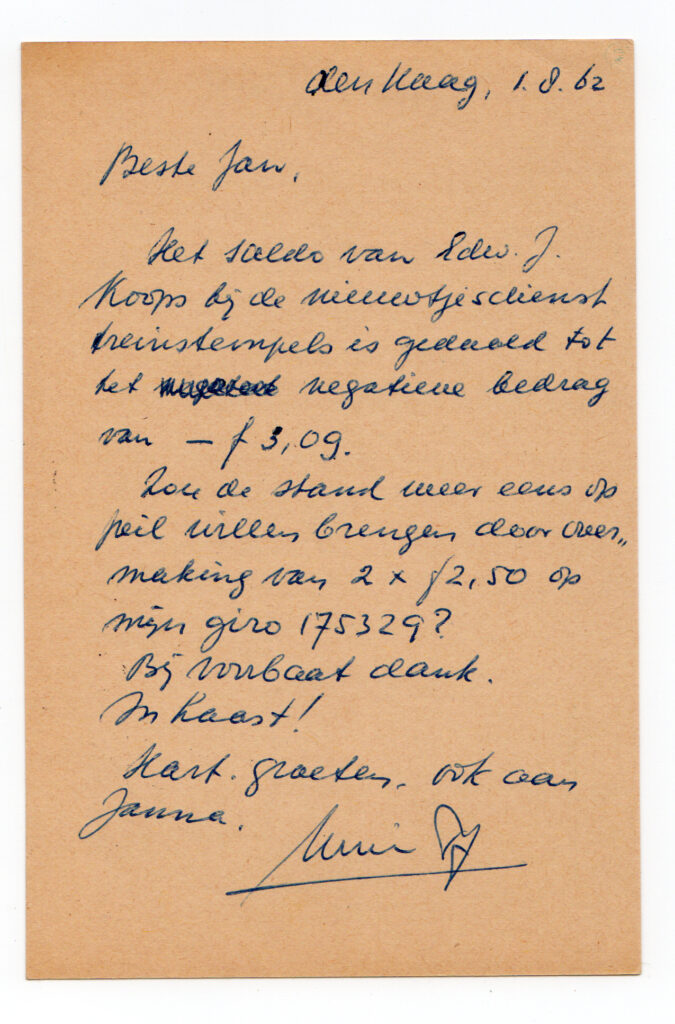 den Haag, 1.8.62
Beste Jan,
Het saldo van Edw. J.
Koops bij de nieuwtjesdienst
treinstempels is gedaald tot
het negatieve bedrag
van – f 3,09.
Zou de stand weer eens op
peil willen brengen door over„
making van 2 x f 2,50 op
mijn giro 175329?
Bij voorbaat dank.
In haast!
Hart. groeten, ook aan
Janna.